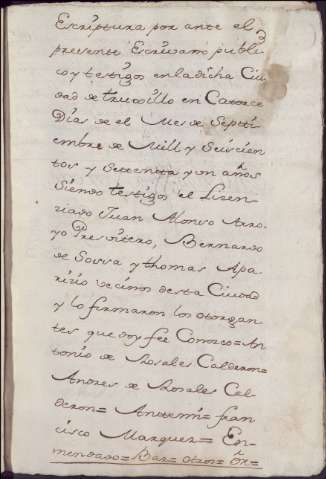 Escriptura por ante el
presente Escrivano publi
co y testigos en la dicha Ciu
dad de truxillo en Catorce
Dias de el Mes de Septi
embre de Mill y Seiscien
tos y Settenta y un años
Siendo testigos el Lizen
ciado Juan Alonso Arro
yo Presvitero, Bernardo
de Sossa y thomas Apa
rizio vecinos desta Ciudad
y lo firmaron los otorgan
tes que doy fee Conozco = An
tonio de Rosales Calderon =
Andres de Rosales Cal
deron = Antemi = fran
cisco Marquez = En
mendado = Bar = otros =